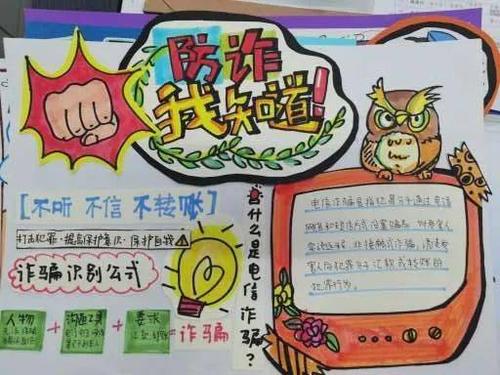 防诈
我知道!
[不听 不信 不转账]
打击犯罪·提高保护意识·保护自我
诈骗识别公式
人物 + 沟通工具 + 要求 = 诈骗
什么是电信诈骗?
电信诈骗是指犯罪分子通过电话
网络和短信方式
害人
实施远程、非接触式诈骗,诱使受
害人给犯罪分子汇款或转账的
犯罪行为。